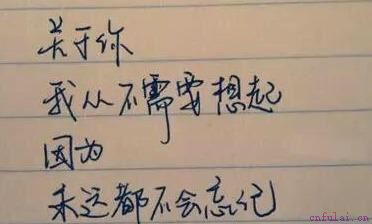 关于你
我从不需要想起
因为
永远都不会忘记
cnfulai.cn